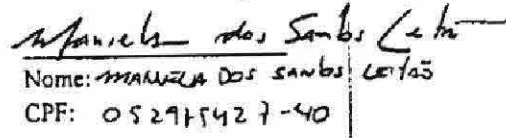 Manuela dos Santos Leitão
Nome: MANUELA DOS SANTOS LEITÃO
CPF: 052975427-40